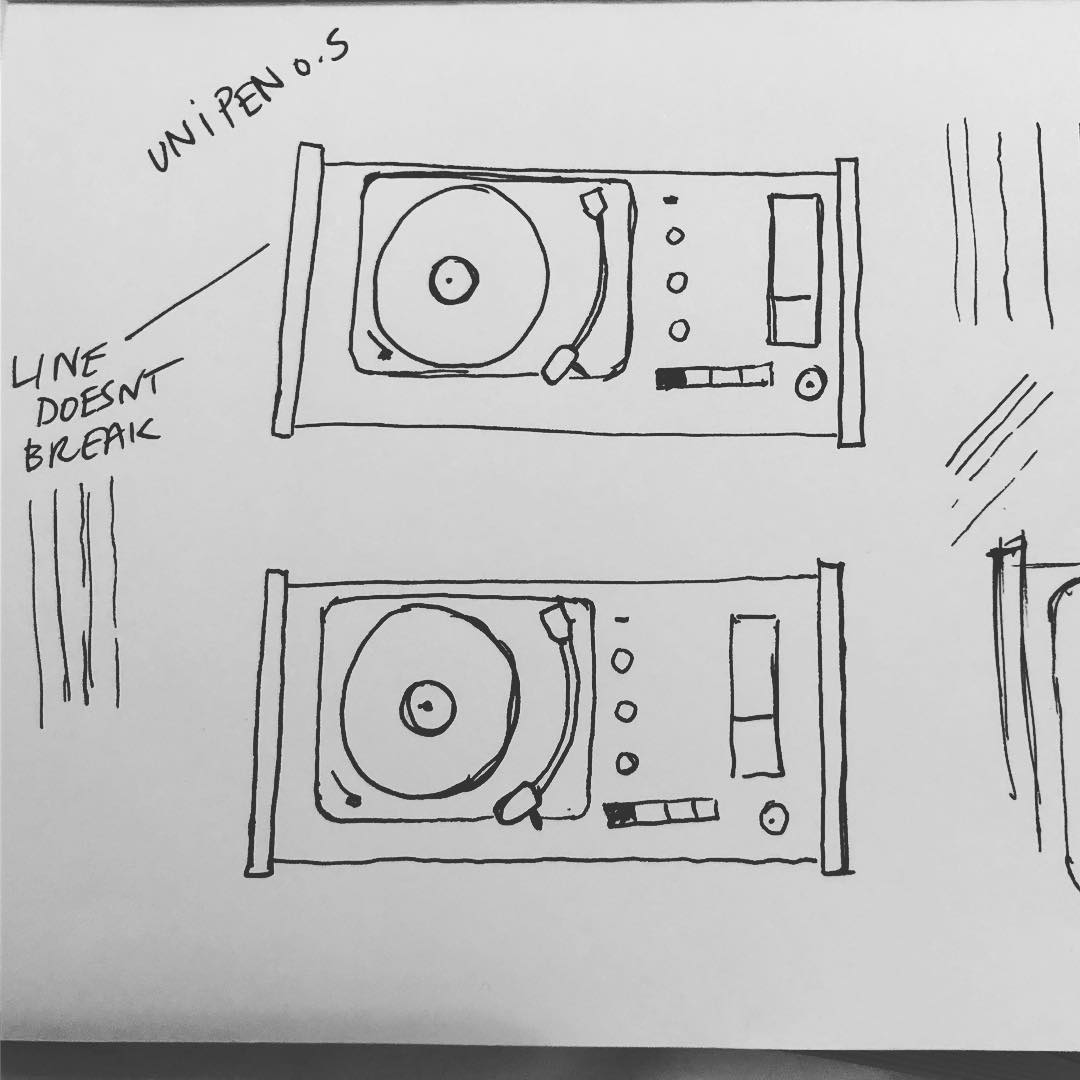 UNiPEN 0.5
LINE
DOESNT
BREAK